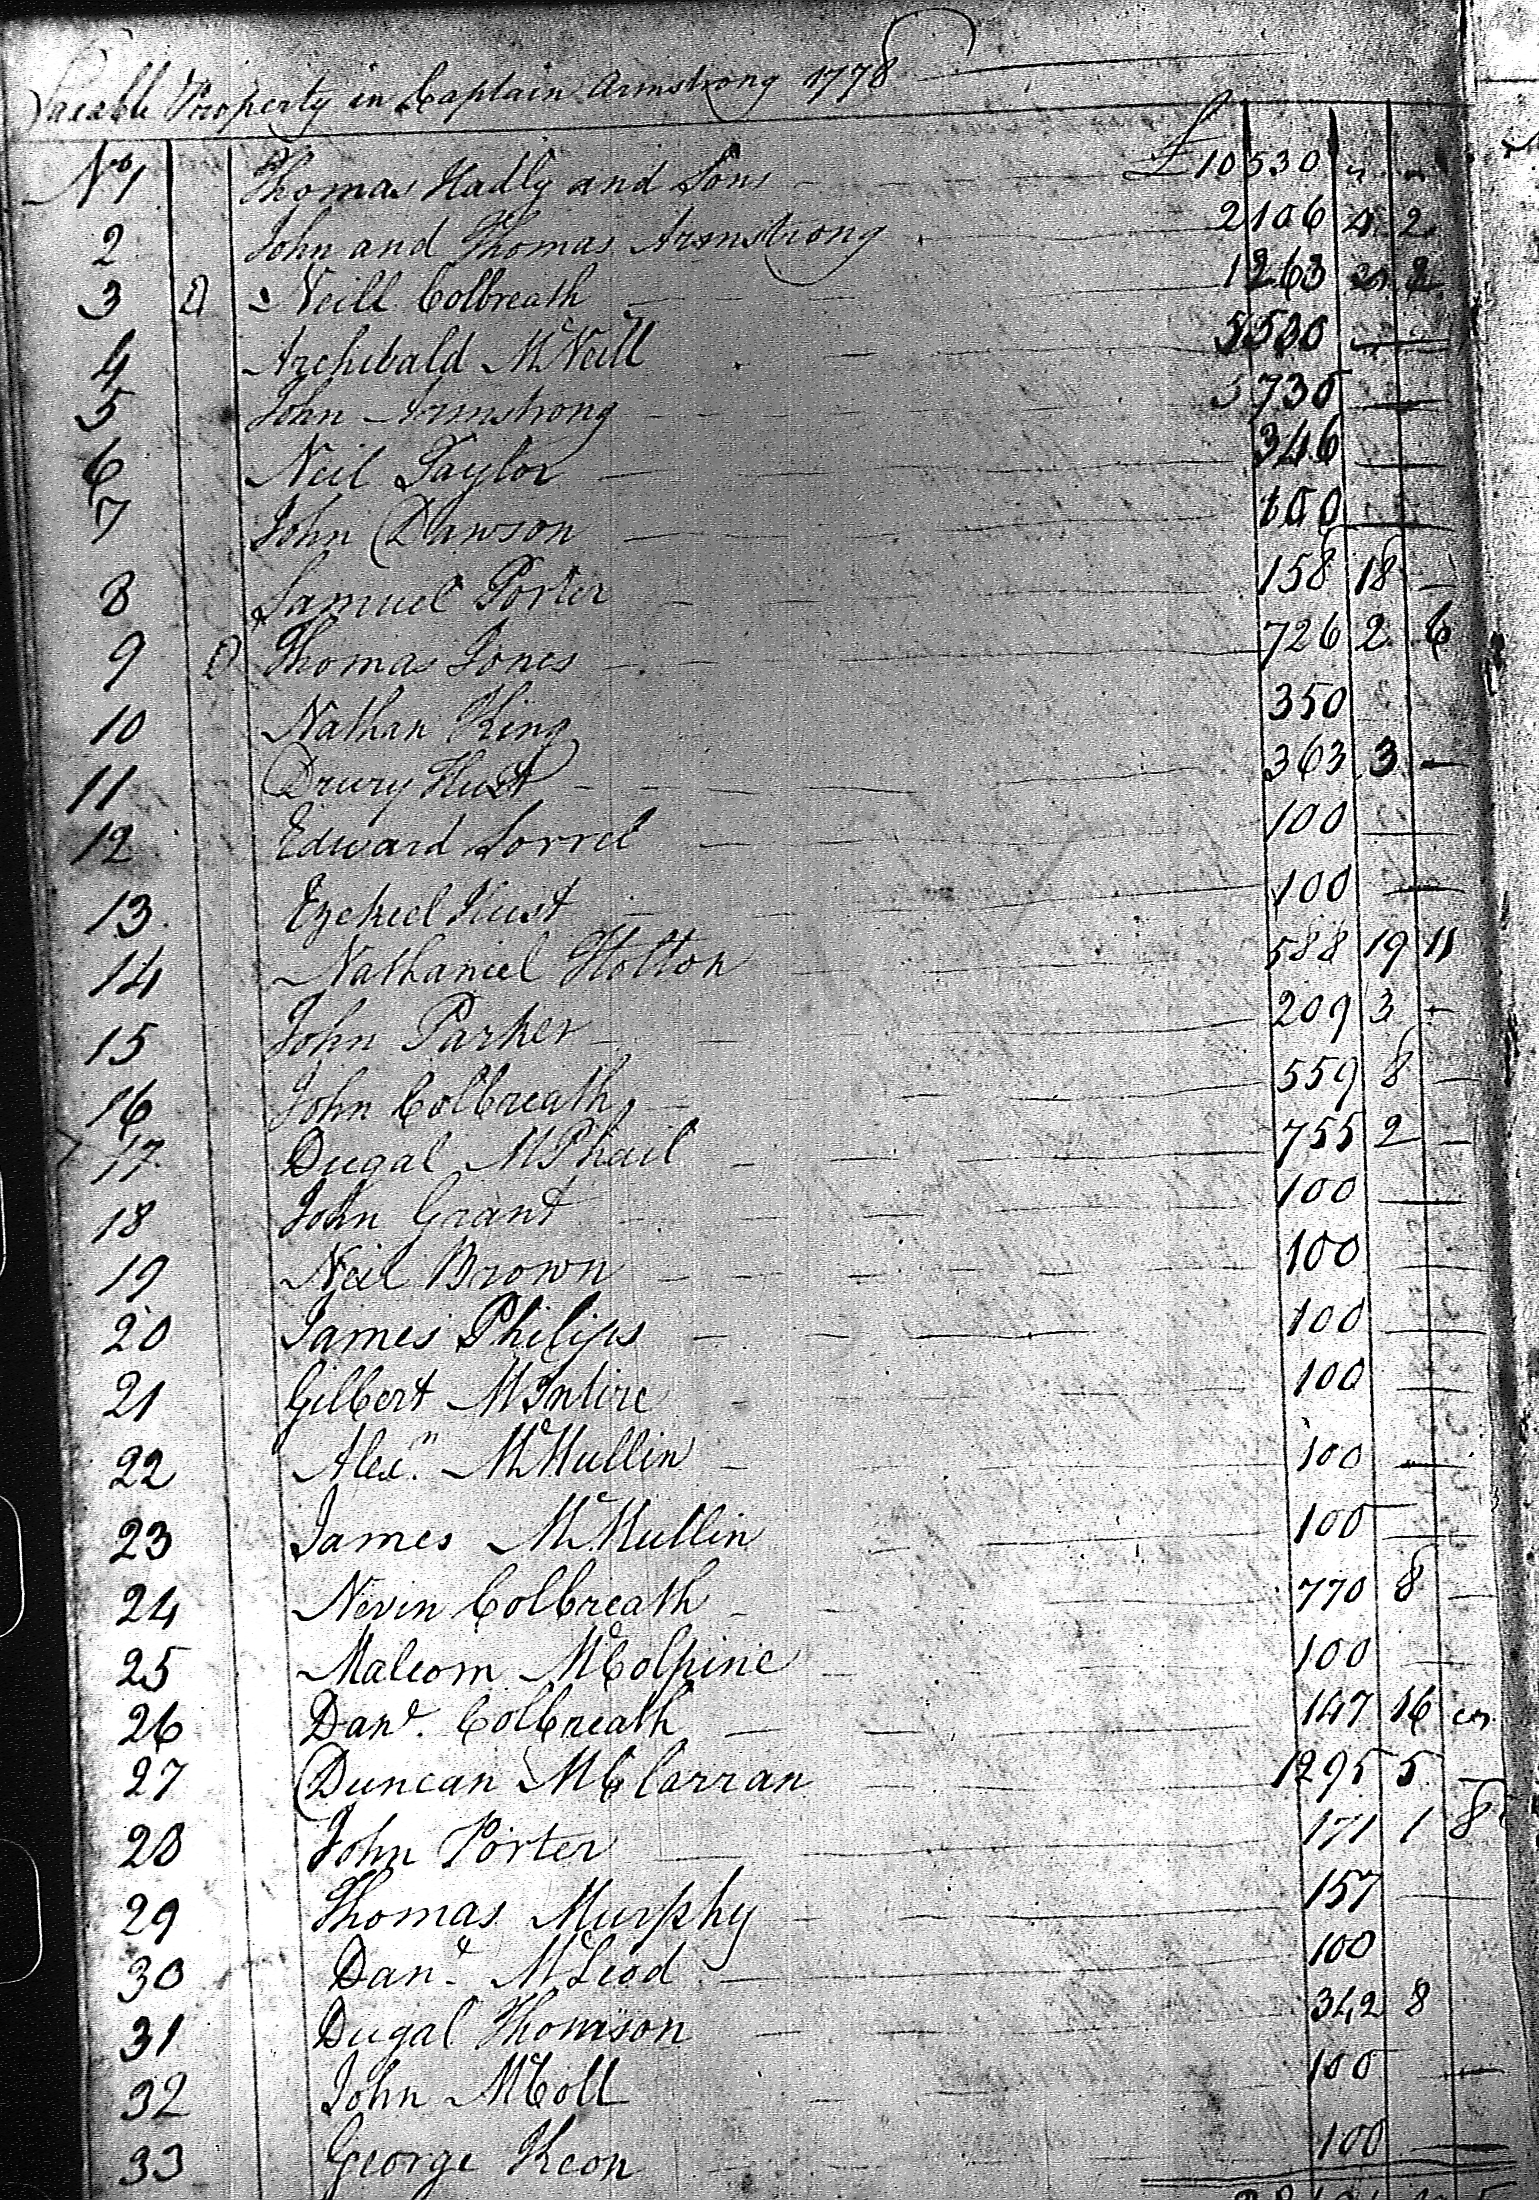 Taxable Property in Captain Armstrong 1778
No 1 Thomas Hadly and Sons £10530
2 John and Thomas Armstrong 2106 4 2
3 Neill Colbreath 1263 2
4 Archibald McNeill 5530
5 John Armstrong 5730
6 Neil Taylor 346
7 John Dawson 100
8 Samuel Porter 158 18
9 Thomas Jones 726 2 6
10 Nathan King 350
11 Drury Hust 363 3
12 Edward Sorrel 100
13 Ezekiel Hust 100
14 Nathaniel Holton 588 19 11
15 John Parker 209 3
16 John Colbreath 559 8
17 Dugal McPhail 755 2
18 John Grant 100
19 Neil Brown 100
20 James Philips 100
21 Gilbert McIntire 100
22 Alexn. McMullin 100
23 James McMullin 100
24 Nevin Colbreath 770 8
25 Malcom McColpine 100
26 Danl. Colbreath 147 16
27 Duncan McCarran 1295 5
28 John Porter 171 1 8
29 Thomas Murphy 157
30 Danl. McLeod 100
31 Dugal Thomson 342 8
32 John McColl 100
33 George Keon 100